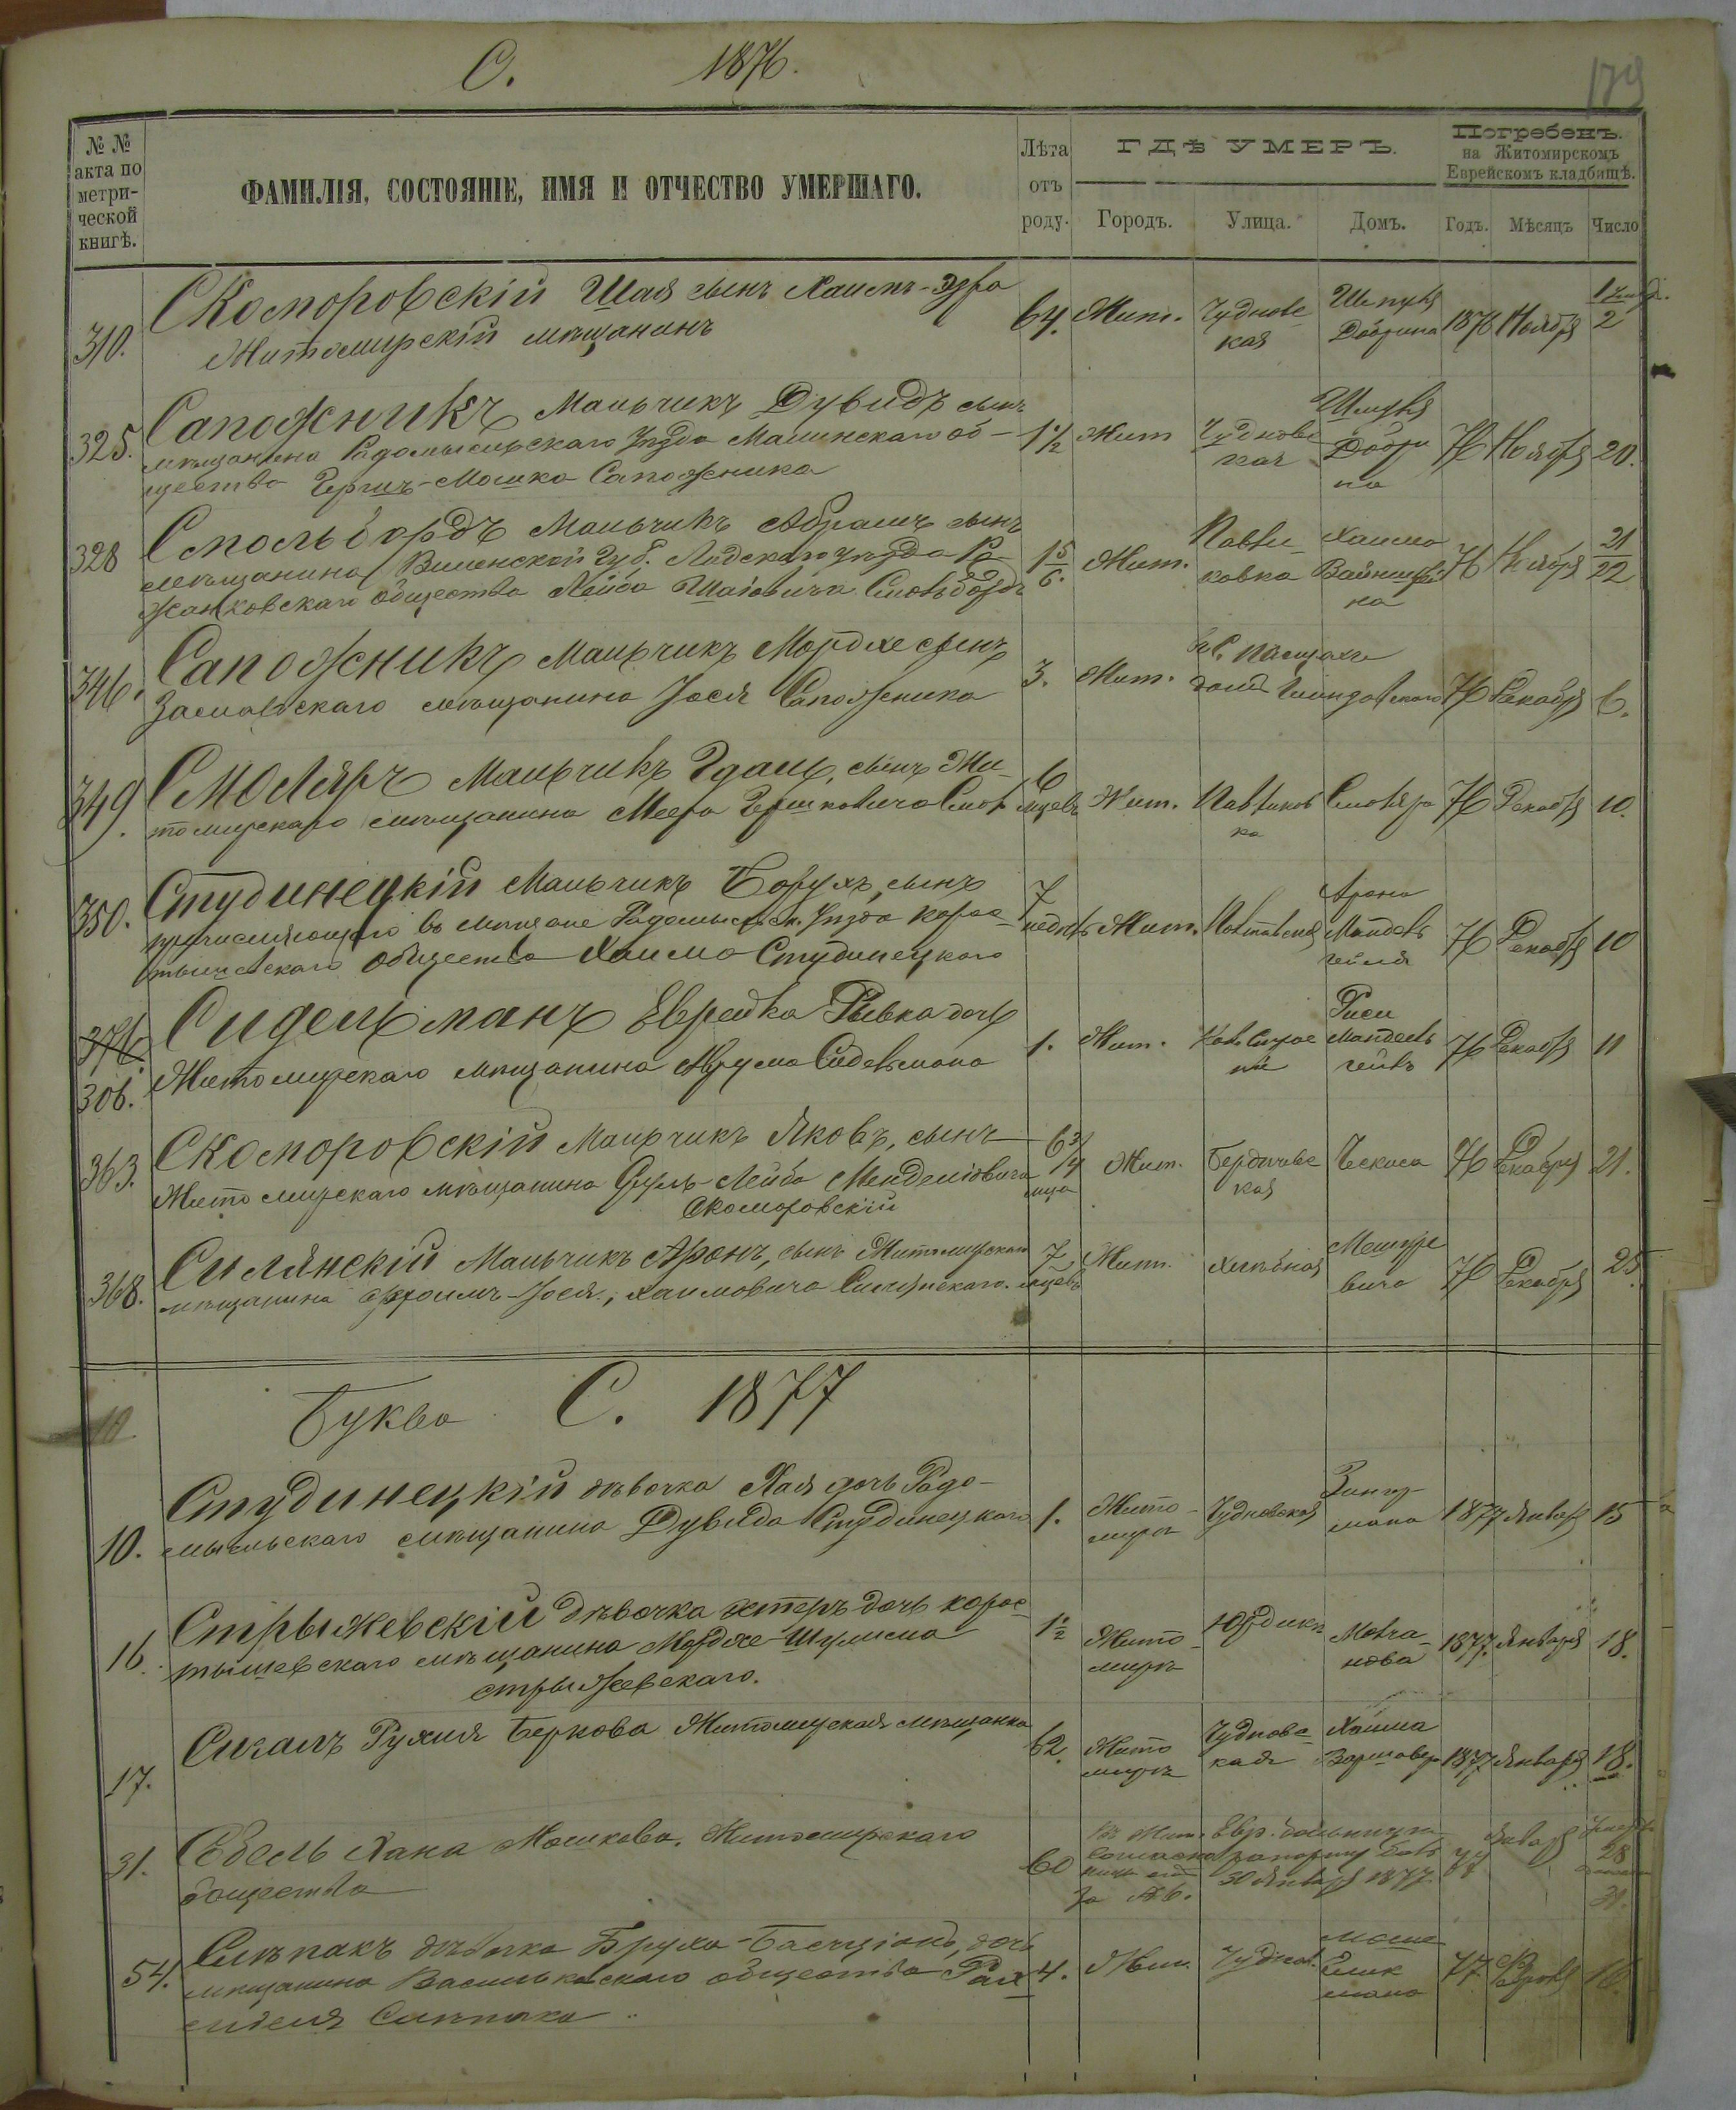 С. 1876.
179
№ №
акта по
метри-
ческой
книгѣ.
ФАМИЛІЯ, СОСТОЯНІЕ, ИМЯ И ОТЧЕСТВО УМЕРШАГО.
Лѣта
отъ
роду.
ГДѢ УМЕРЪ.
Городъ. Улица. Домъ.
Погребенъ.
на Житомирскомъ
Еврейскомъ кладбищѣ.
Годъ. Мѣсяцъ Число
310. Скоморовскій Шая сынъ Хаимъ-
Житомирскій мѣщанинъ
64. Жит. Чудновс
кая
1876 Ноября 2
325. Сапожникъ Мальчикъ Дувидъ сынъ
мѣщанина Радомысльскаго уѣзда Малинскаго об-
щества Гершъ-Мошка Сапожника
1 1/2 Жит Чудновс
кая
76 Ноября 20.
328 Смольбордъ Мальчикъ Абрамъ сынъ
мѣщанина Виленской губ. Лидскаго уѣзда Ро-
жанковскаго общества Лейба Шаіовича Смольбордъ
1 5/6. Жит. Павли-
ковка
Хаима
76 Ноября 21
22
346. Сапожникъ Мальчикъ Мордхе сынъ
Заславскаго мѣщанина Іося Сапожника
3. Жит.
домъ
76 Декабря 6.
349. Смоляръ Мальчикъ сынъ Жи-
томирскаго мѣщанина Меера Гершковича Смол
6
мцевъ Жит. Павликов
ка
Смоляра 76 Декабря 10.
350. Студинецкій Мальчикъ Борухъ, сынъ
въ мѣщане Радомысльск. уѣзда Корос-
тышевскаго общества Хаима Студинецкаго
7
недѣль Жит.
Арона
Мандель
76 Декабря 10
376.
306. Сидельманъ Еврейка Ривка дочь
Житомирскаго мѣщанина Сидельмана
1. Жит.
Мандель
76 Декабря 11
363. Скоморовскій Мальчикъ Яковъ, сынъ
Житомирскаго мѣщанина Сруль-Лейба Менделіовича
Скоморовскій
6 3/4
мца Жит. Бердичевс
кая
76 Декабря 21.
368. Силянскій Мальчикъ Аронъ, сынъ Житомирскаго
мѣщанина Фроимъ-Іося, Хаимовича Силянскаго.
7
мцевъ Жит. Хлѣбная
76 Декабря 25.
Буква С. 1877
10.
10. Студинецкій дѣвочка Хая дочь Радо-
мысльскаго мѣщанина Дувида Студинецкаго
1. Жито-
миръ Чудновская
1877 Январь 15
16. Стрыжевскій дѣвочка Эстеръ дочь Корос-
тышевскаго мѣщанина Мордхе-Шулима
Стрыжевскаго.
1 1/2 Жито-
миръ Юрдика Молча-
нова
1877. Января 18.
17. Сигалъ Рухля Беркова Житомирская мѣщанка
62. Жито
миръ Чудновс-
кая Хаима
Варшавера
1877 Января 18.
31. Себель Хана Мошкова. Житомирскаго
общества
60 Въ Жит. Евр. больницѣ
согласно рапорту
30 Января 1877
за № 6.
77 Январь 28
31.
54. Слѣпакъ дѣвочка Бруха- дочь
мѣщанина Васильковскаго общества
Слѣпака
4. Жит. Чуднов.
77. 16.